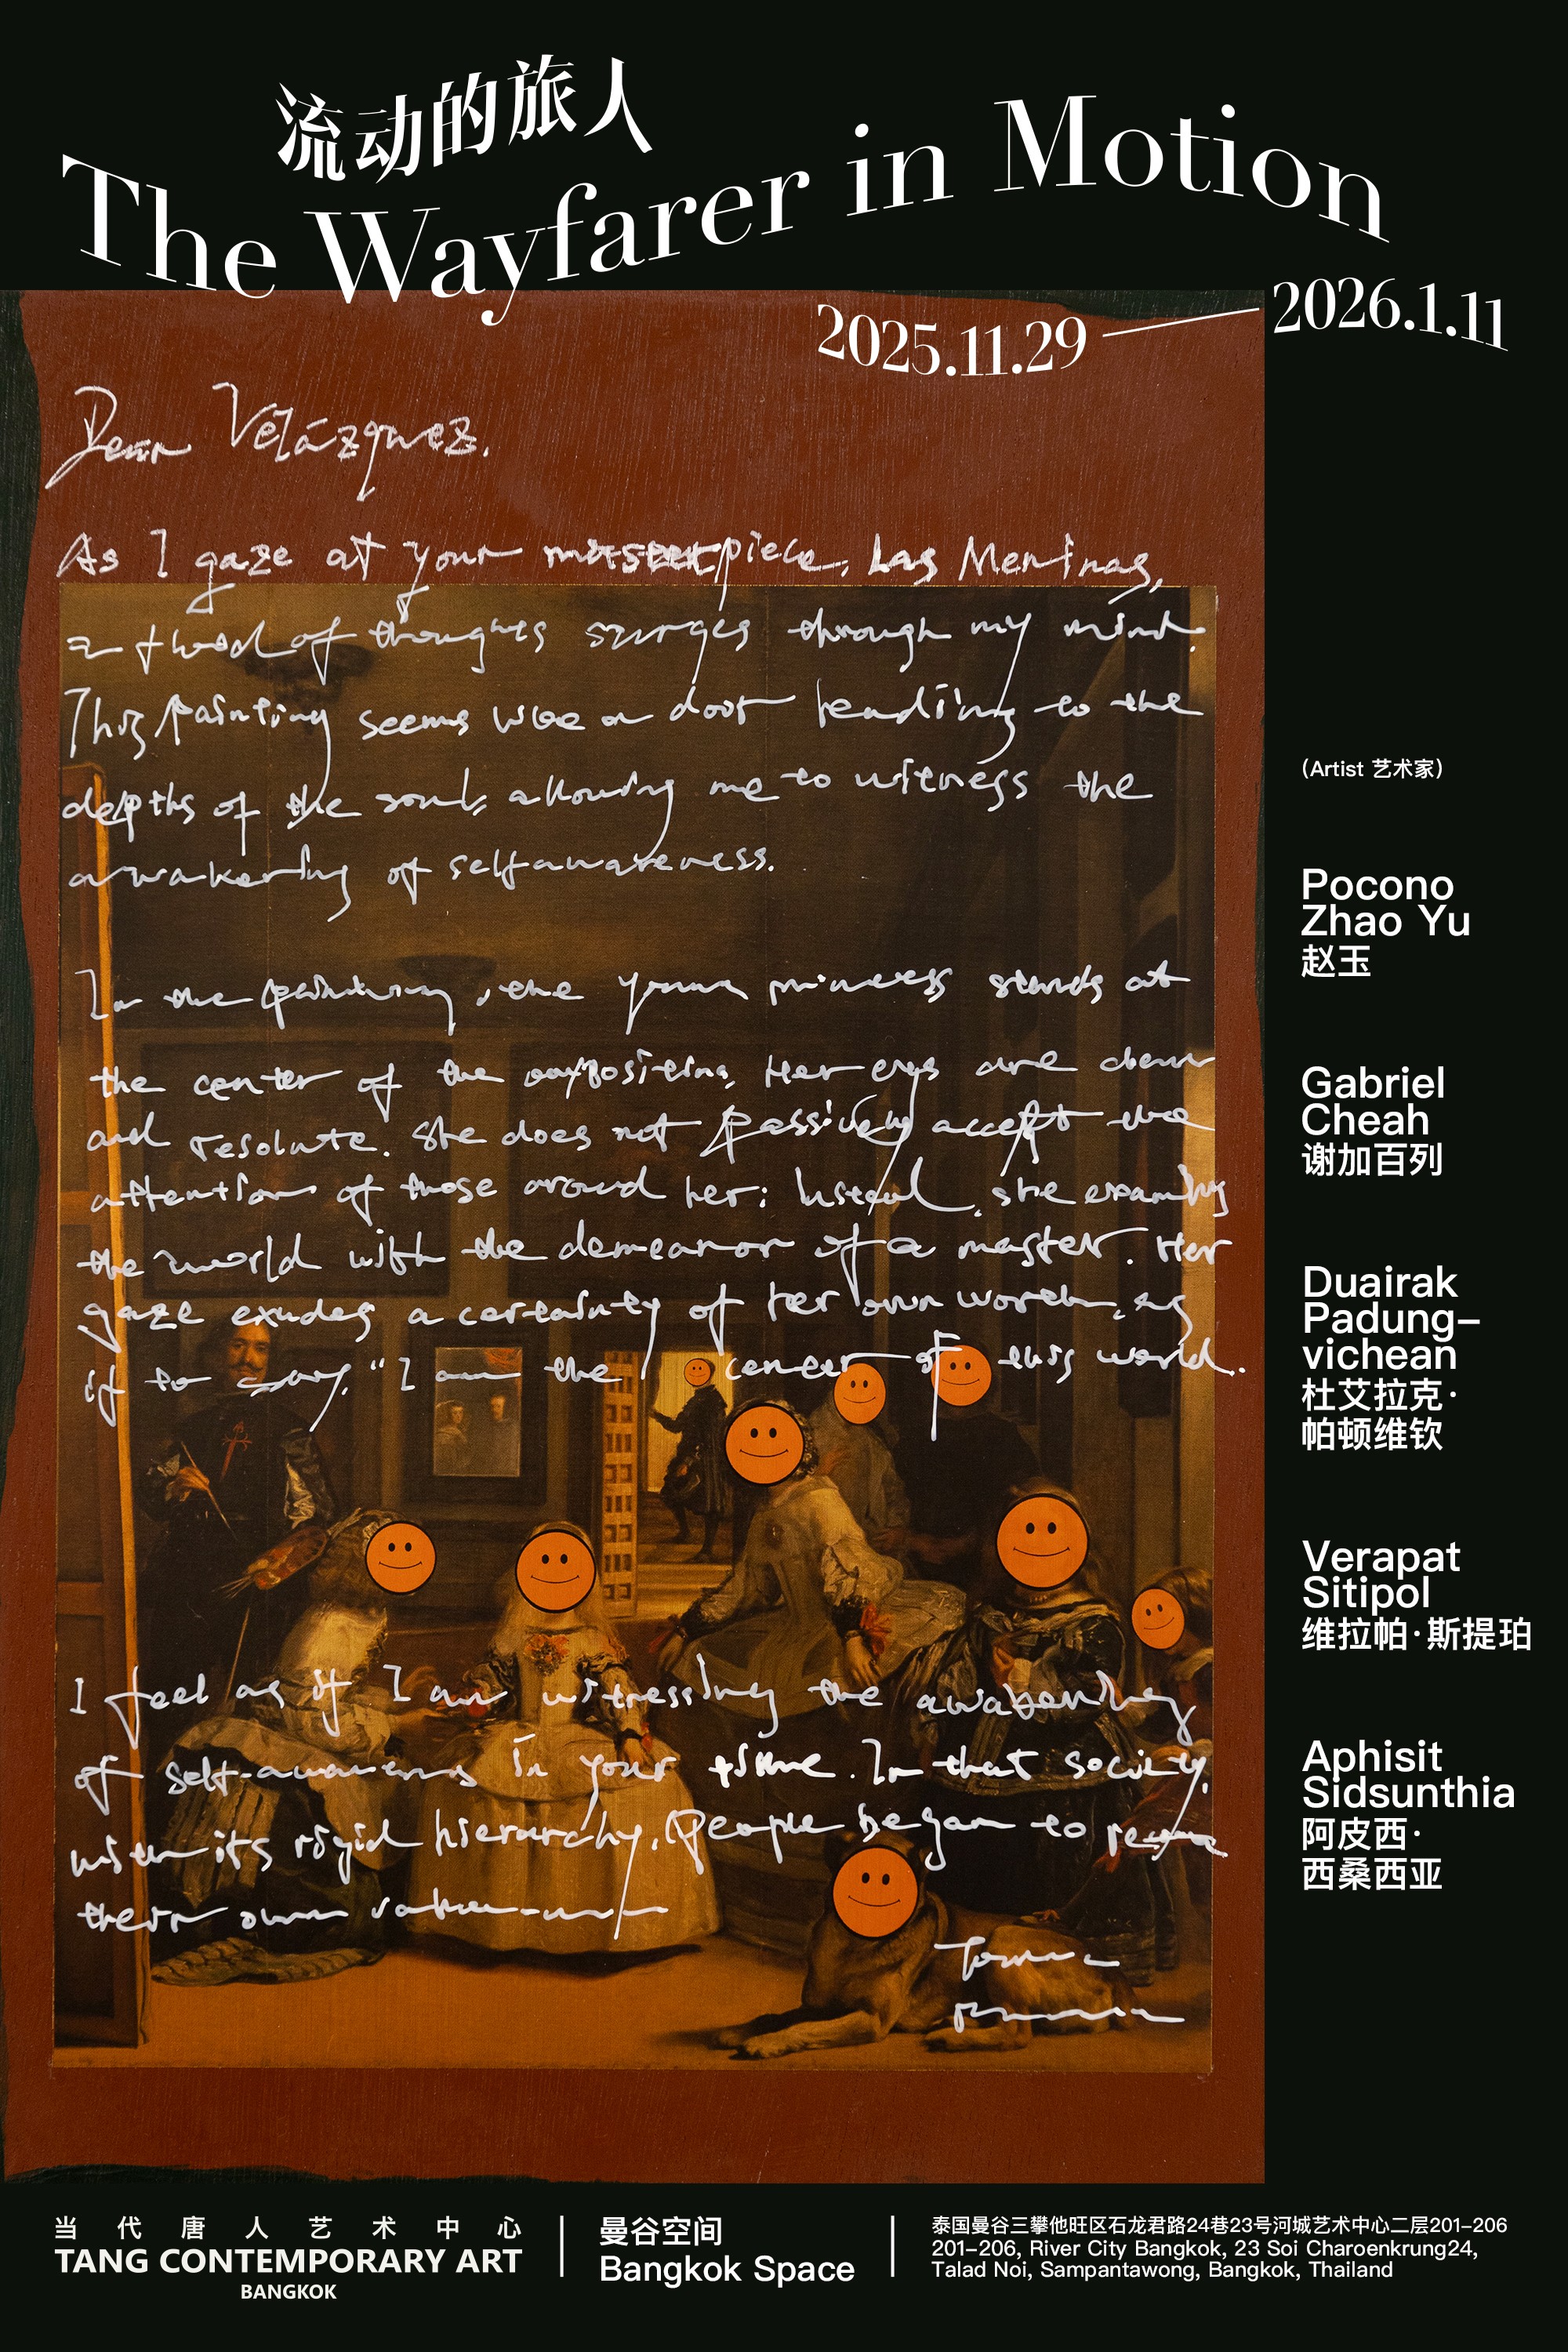 流动的旅人
The Wayfarer in Motion
2025.11.29 — 2026.1.11
Dear Velázquez.
As I gaze at your masterpiece, Las Meninas,
a flood of thoughts surges through my mind.
This painting seems like a door leading to the
depths of the soul, allowing me to witness the
awakening of selfawareness.
In the painting, the young princess stands at
the center of the composition. Her eyes are clear
and resolute. She does not passively accept the
attention of those around her; Instead, she examines
the world with the demeanor of a master. Her
gaze exudes a certainty of her own worth, as
if to say, "I am the center of this world.
I feel as if I am witnessing the awakening
of self-awareness in your time. In that society,
with its rigid hierarchy, People began to
their own
(Artist 艺术家)
Pocono
Zhao Yu
赵玉
Gabriel
Cheah
谢加百列
Duairak
Padung–
vichean
杜艾拉克·
帕顿维钦
Verapat
Sitipol
维拉帕·斯提珀
Aphisit
Sidsunthia
阿皮西·
西桑西亚
当代唐人艺术中心
TANG CONTEMPORARY ART
BANGKOK
曼谷空间
Bangkok Space
泰国曼谷三攀他旺区石龙君路24巷23号河城艺术中心二层201–206
201–206, River City Bangkok, 23 Soi Charoenkrung24,
Talad Noi, Sampantawong, Bangkok, Thailand